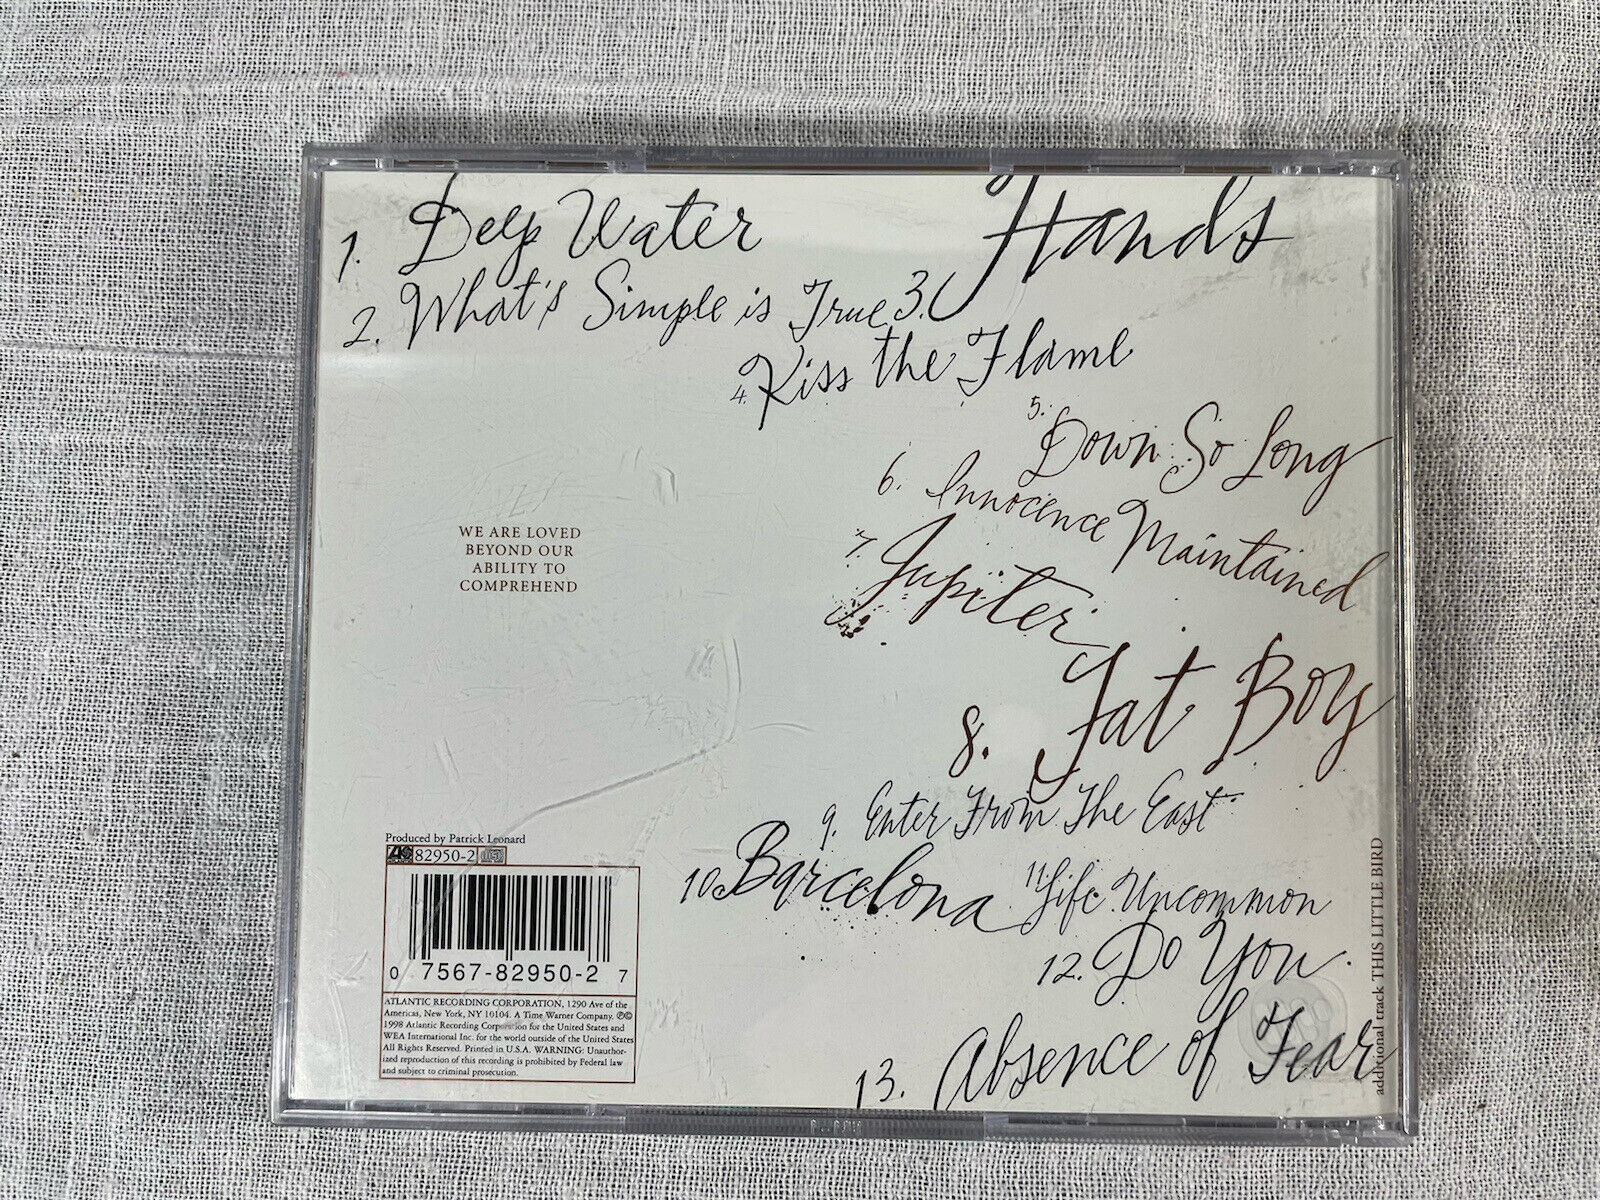 1. Deep Water
2. What's Simple is True
3. Hands
4. Kiss the Flame
5. Down So Long
6. Innocence Maintained
7. Jupiter
8. Fat Boy
9. Enter From The East
10. Barcelona
11. Life Uncommon
12. Do You
13. Absence of Fear
additional track THIS LITTLE BIRD
WE ARE LOVED
BEYOND OUR
ABILITY TO
COMPREHEND
Produced by Patrick Leonard
82950-2
0 7567-82950-2 7
ATLANTIC RECORDING CORPORATION, 1290 Ave of the
Americas, New York, NY 10104. A Time Warner Company. ℗©
1998 Atlantic Recording Corporation for the United States and
WEA International Inc. for the world outside of the United States
All Rights Reserved. Printed in U.S.A. WARNING: Unauthor-
ized reproduction of this recording is prohibited by Federal law
and subject to criminal prosecution.